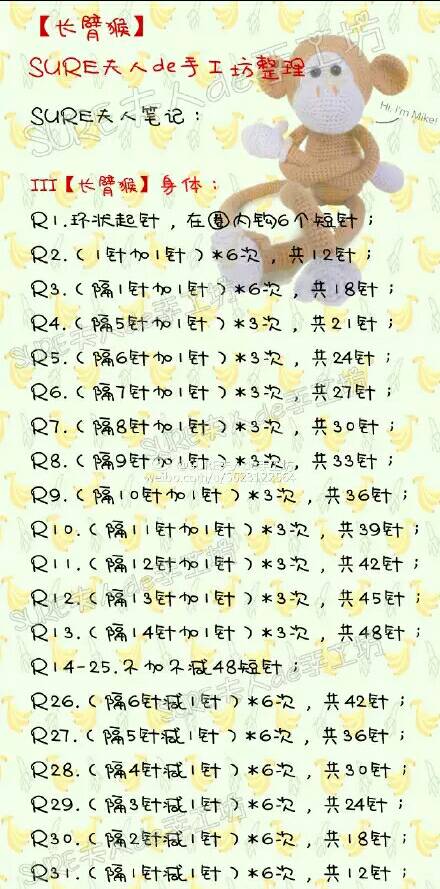 【长臂猴】
SURE夫人de手工坊整理
Hi, I'm Mike!
SURE夫人笔记：
III【长臂猴】身体：
R1.环状起针，在圈内钩6个短针；
R2.（1针加1针）*6次，共12针；
R3.（隔1针加1针）*6次，共18针；
R4.（隔5针加1针）*3次，共21针；
R5.（隔6针加1针）*3次，共24针；
R6.（隔7针加1针）*3次，共27针；
R7.（隔8针加1针）*3次，共30针；
R8.（隔9针加1针）*3次，共33针；
R9.（隔10针加1针）*3次，共36针；
R10.（隔11针加1针）*3次，共39针；
R11.（隔12针加1针）*3次，共42针；
R12.（隔13针加1针）*3次，共45针；
R13.（隔14针加1针）*3次，共48针；
R14-25.不加不减48短针；
R26.（隔6针减1针）*6次，共42针；
R27.（隔5针减1针）*6次，共36针；
R28.（隔4针减1针）*6次，共30针；
R29.（隔3针减1针）*6次，共24针；
R30.（隔2针减1针）*6次，共18针；
R31.（隔1针减1针）*6次，共12针；